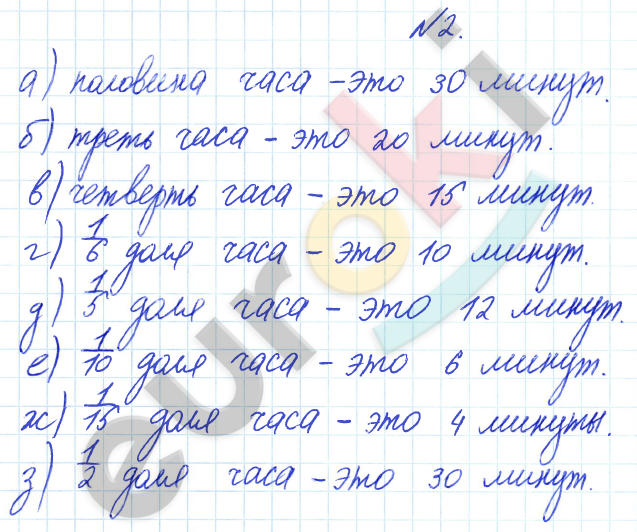 №2.
а) половина часа – это 30 минут.
б) треть часа – это 20 минут.
в) четверть часа – это 15 минут.
г) 1/6 доля часа – это 10 минут.
д) 1/5 доля часа – это 12 минут.
е) 1/10 доля часа – это 6 минут.
ж) 1/15 доля часа – это 4 минуты.
з) 1/2 доля часа – это 30 минут.
euroki